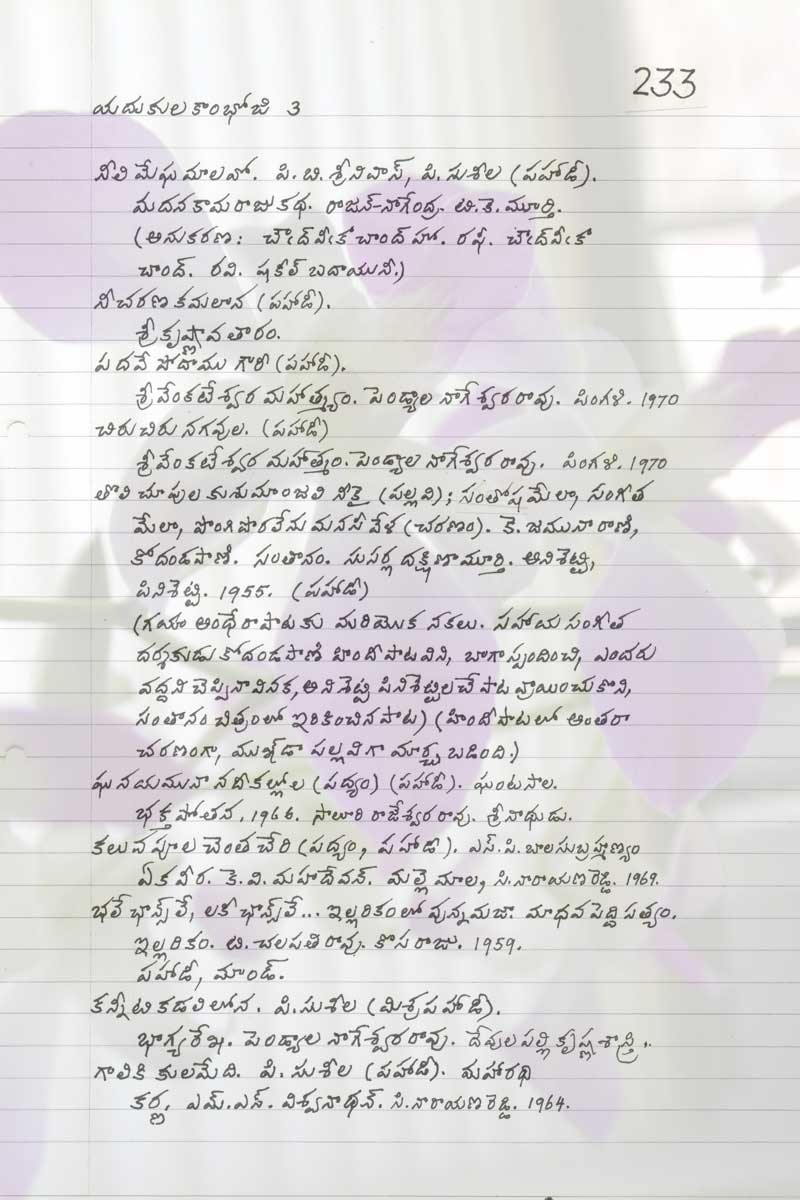 233
యదుకుల కాంభోజి 3
నీలి మేఘ మాలవో. పి. బి. శ్రీనివాస్, పి. సుశీల (పహాడీ).
మదనకామరాజు కథ. రాజన్-నాగేంద్ర. టి. కె. మూర్తి.
(అనుకరణ: చౌద్‌వీకా చాంద్ హో. రఫీ. చౌద్‌వీకా
చాంద్. రవి. షకీల్ బదాయునీ.)
నీ చరణ కమలాన (పహాడీ).
శ్రీకృష్ణావతారం.
పదవే పోదాము గౌరీ (పహాడీ).
శ్రీ వేంకటేశ్వర మహాత్మ్యం. పెండ్యాల నాగేశ్వర రావు. పింగళి. 1970
చిరు చిరు నగవుల. (పహాడీ)
శ్రీ వేంకటేశ్వర మహాత్మం. పెండ్యాల నాగేశ్వర రావు. పింగళి. 1970
తొలి చూపుల కుశుమాంజలి నీకై (పల్లవి); సంతోషమేలా, సంగీత
మేలా, పొంగిపొరలేను మనసీవేళ (చరణం). కె. జమునారాణి,
కోదండపాణి. సంతానం. సుసర్ల దక్షిణామూర్తి. అనిశెట్టి,
పినిశెట్టి. 1955. (పహాడీ)
(గయా అంధేరా పాటకు మరియొక నకలు. సహాయ సంగీత
దర్శకుడు కోదండపాణి హిందీపాట విని, బాగా స్పందించి, ఎందరు
వద్దని చెప్పినా వినక, అనిశెట్టి పినిశెట్టిలచే పాట వ్రాయించుకొని,
సంతానం చిత్రంలో ఇరికించిన పాట) (హిందీపాటలో అంతరా
చరణంగా, ముఖ్‌డా పల్లవిగా మార్చబడింది.)
ఘన యమునా నదీ కల్లోల (పద్యం) (పహాడీ). ఘంటసాల.
భక్త పోతన, 1966. సాలూరి రాజేశ్వర రావు. శ్రీనాథుడు.
కలువ పూల చెంత చేరి (పద్యం, పహాడీ). ఎస్. పి. బాలసుబ్రహ్మణ్యం
ఏకవీర. కె. వి. మహాదేవన్. మల్లెమాల, సి. నారాయణ రెడ్డి. 1969.
భలే ఛాన్స్‌లే, లకీ ఛాన్స్‌లే... ఇల్లరికంలో వున్న మజా. మాధవపెద్ది సత్యం.
ఇల్లరికం. టి. చలపతి రావు. కొసరాజు. 1959.
పహాడీ, మాండ్.
కన్నీటి కడలిలోన. పి. సుశీల (మిశ్ర పహాడీ).
భాగ్యరేఖ. పెండ్యాల నాగేశ్వర రావు. దేవులపల్లి కృష్ణ శాస్త్రి.
గాలికి కులమేది. పి. సుశీల (పహాడీ). మహారథి
కర్ణ, ఎమ్. ఎస్. విశ్వనాథన్. సి. నారాయణ రెడ్డి. 1964.